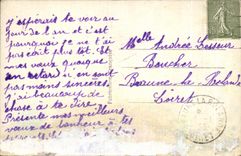 J'espérais te voir au
jour de l'an et c'est
pourquoi je ne t'ai
pas écrit plus tôt.
mes vœux quoique
en retard n'en sont
pas moins sincères.
J'ai beaucoup de
chose à te dire.
Présente mes meilleurs
vœux de bonheur à tes
Melle Andrée Lesseur
Boucher
Beaune la Rolande
Loiret